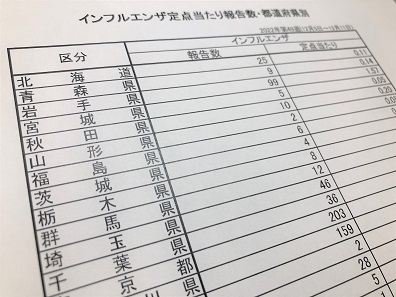 インフルエンザ定点当たり報告数・都道府県別
2022年第49週(12月5日〜12月11日)
区分 インフルエンザ
報告数 定点当たり
北海道 25 0.11
青森県 9 0.14
岩手県 99 1.57
宮城県 5 0.05
秋田県 10 0.20
山形県 2
福島県 6
茨城県 4
栃木県 8
群馬県 12
埼玉県 46
千葉県 36
京都 203
川 159
2
28
5